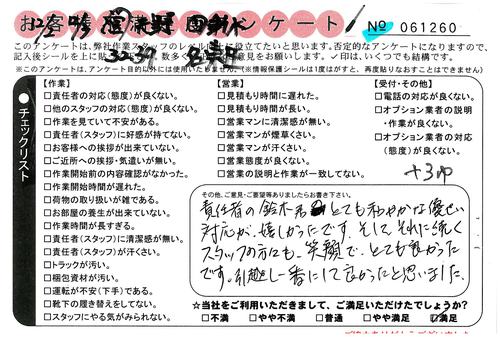 お客様 アンケート！ № 061260
このアンケートは、弊社作業スタッフのレベル向上に役立てたいと思います。否定的なアンケートになりますので、
記入後シールを上に貼 数多く ご意見をお願いします。✓印は、いくつでも結構です。
※このアンケートは、アンケート目的以外には使用いたしません。(※情報保護シールは1度はがすと、再度貼りなおすことはできません)
チェックリスト
【作業】
□責任者の対応(態度)が良くない。
□他のスタッフの対応(態度)が良くない。
□作業を見ていて不安がある。
□責任者(スタッフ)に好感が持てない。
□お客様への挨拶が出来ていない。
□ご近所への挨拶・気遣いが無い。
□作業開始前の内容確認がなかった。
□作業開始時間が遅れた。
□荷物の取り扱いが雑である。
□お部屋の養生が出来ていない。
□作業時間が長すぎる。
□責任者(スタッフ)に清潔感が無い。
□責任者(スタッフ)が汗くさい。
□トラックが汚い。
□梱包資材が汚い。
□運転が不安(下手)である。
□靴下の履き替えをしてない。
□スタッフにやる気がみられない。
【営業】
□見積もり時間に遅れた。
□見積もり時間が長い。
□営業マンに清潔感が無い。
□営業マンが煙草くさい。
□営業マンが汗くさい。
□営業態度が良くない。
□営業の説明と作業が一致してない。
【受付・その他】
□電話の対応が良くない。
□オプション業者の説明
・作業が良くない。
□オプション業者の対応
(態度)が良くない。
+3
その他、ご意見・ご要望等ありましたらお書き下さい。
責任者の鈴木君 とても和やかな優しい
対応が、嬉しかったです。そして、それに続く
スタッフの方にも、笑顔で、とても良かった
です。引越し一番にして良かったと思いました。
☆当社をご利用いただきまして、ご満足いただけたでしょうか?
□不満 □やや不満 □普通 □やや満足 ☑満足